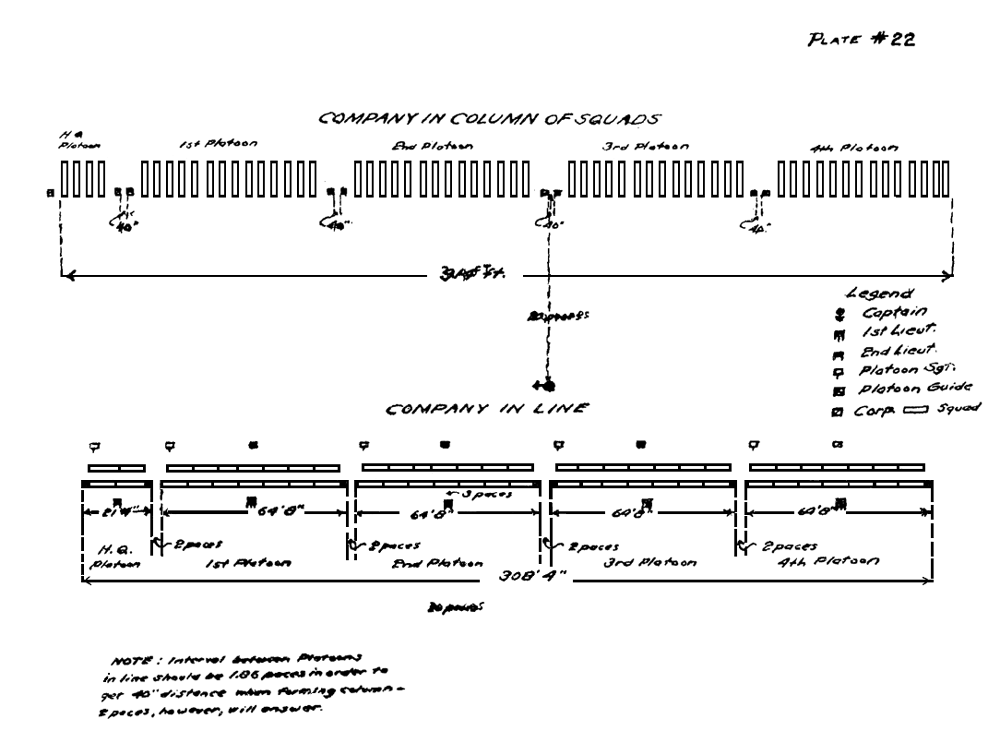 PLATE #22
COMPANY IN COLUMN OF SQUADS
H.Q.
Platoon
1st Platoon
2nd Platoon
3rd Platoon
4th Platoon
40"
40"
40"
40"
Legend
Captain
1st Lieut.
2nd Lieut.
Platoon Sgt.
Platoon Guide
Corp. Squad
COMPANY IN LINE
3 paces
21'4"
64'8"
64'8"
64'8"
64'8"
2 paces
2 paces
2 paces
2 paces
H.Q.
Platoon
1st Platoon
2nd Platoon
3rd Platoon
4th Platoon
308'4"
NOTE: Interval between Platoons
in line should be 1.86 paces in order to
get 40" distance when forming column -
2 paces, however, will answer.